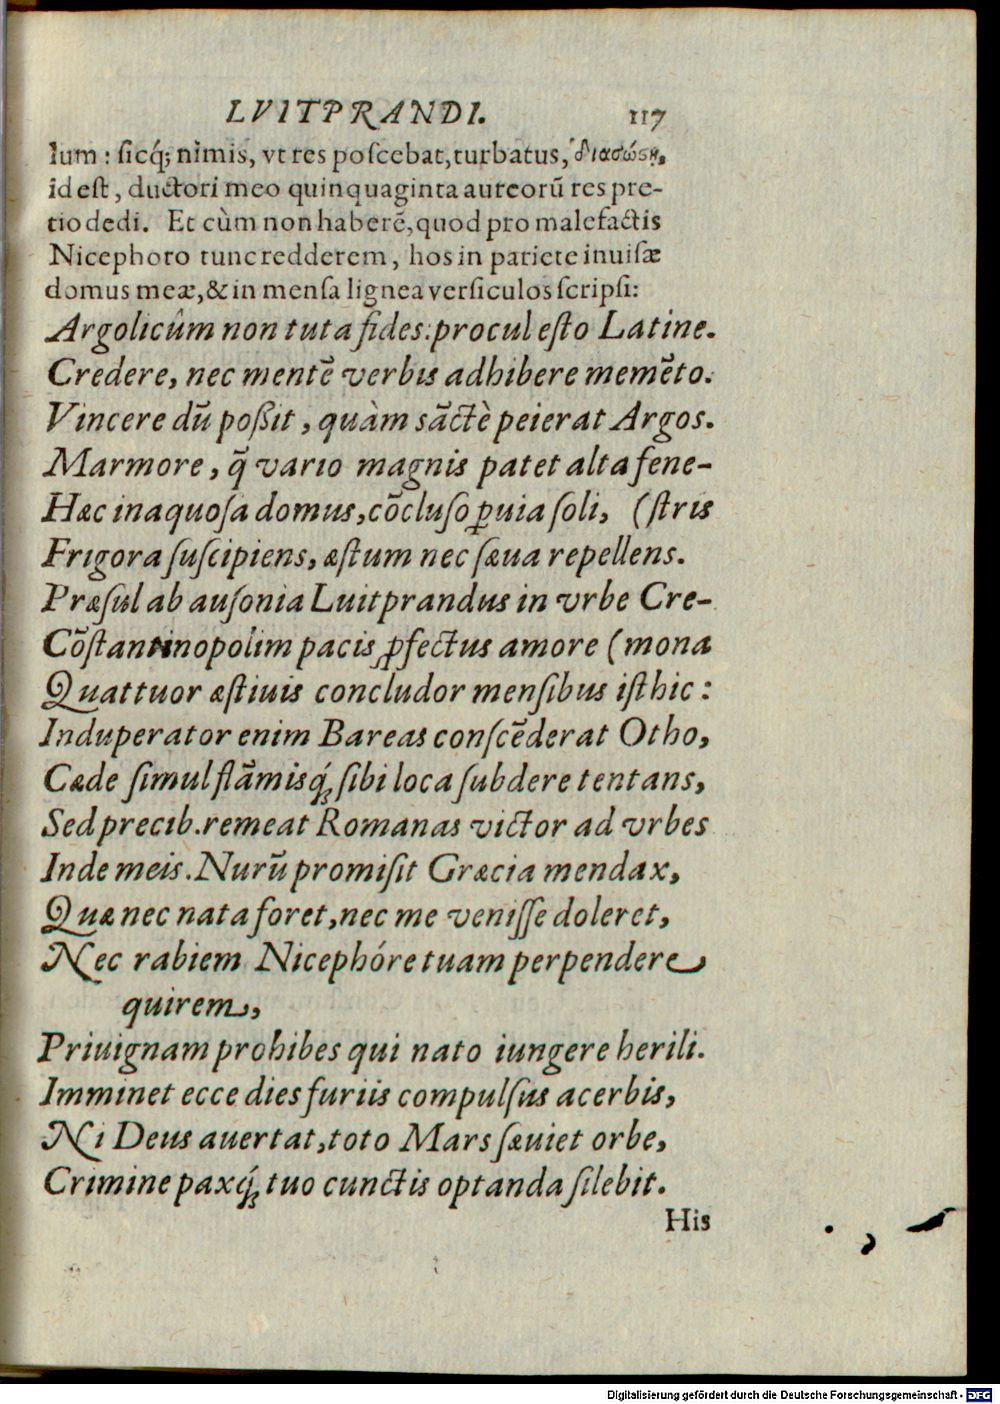 LVITPRANDI. 117
lum: ſicq́; nimis, vt res poſcebat, turbatus, διασώϛῃ,
id eſt, ductori meo quinquaginta aureorũ res pre-
tio dedi. Et cùm non haberẽ, quod pro malefactis
Nicephoro tunc redderem, hos in pariete inuiſæ
domus meæ, & in menſa lignea verſiculos ſcripſi:
Argolicûm non tuta fides: procul eſto Latine.
Credere, nec mentẽ verbis adhibere memẽto.
Vincere dũ poßit, quàm sãctè peierat Argos.
Marmore, q̃ vario magnis patet alta fene-
Hæc inaquoſa domus, cõcluſo ꝑuia ſoli, (ſtris
Frigora ſuſcipiens, æſtum nec ſæua repellens.
Præſul ab auſonia Luitprandus in vrbe Cre-
Cõſtantinopolim pacis ꝓfectus amore (mona
Quattuor æſtiuis concludor menſibus iſthic:
Induperator enim Bareas conſcẽderat Otho,
Cæde ſimul flãmisq́; ſibi loca ſubdere tentans,
Sed precib. remeat Romanas victor ad vrbes
Inde meis. Nurũ promiſit Græcia mendax,
Quæ nec nata foret, nec me veniſſe doleret,
Nec rabiem Nicephóre tuam perpendere
quirem,
Priuignam prohibes qui nato iungere herili.
Imminet ecce dies furiis compulſus acerbis,
Ni Deus auertat, toto Mars ſæuiet orbe,
Crimine paxq́; tuo cunctis optanda ſilebit.
His
Digitalisierung gefördert durch die Deutsche Forschungsgemeinschaft - DFG